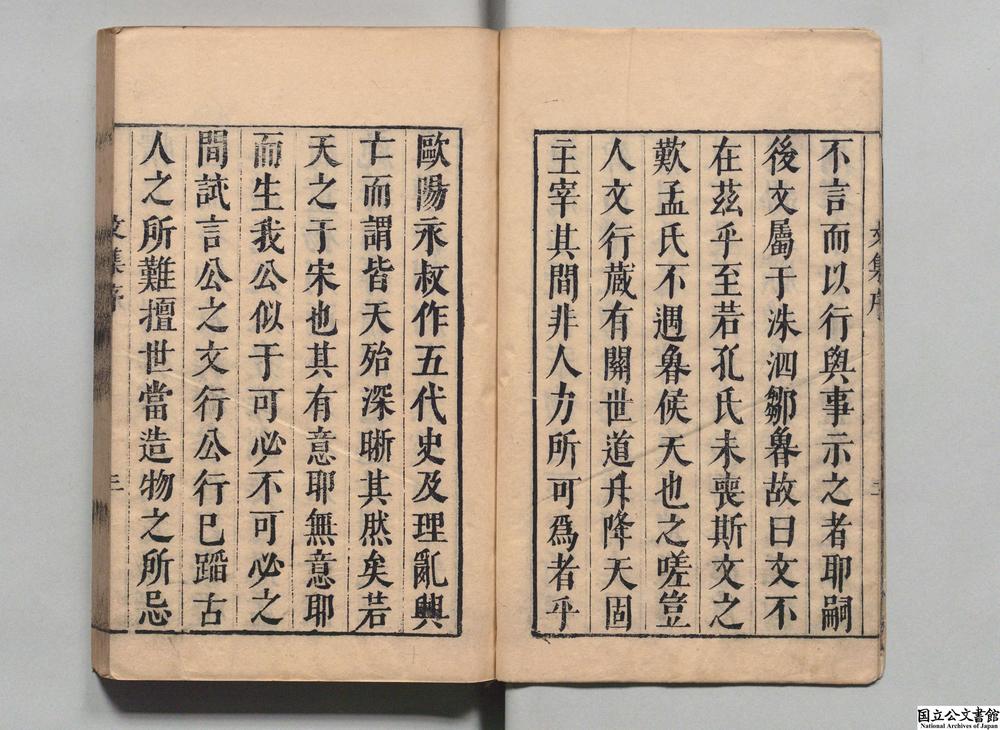 不言而以行與事示之者耶嗣
後文屬于洙泗鄒魯故曰文不
在茲乎至若孔氏未喪斯文之
歎孟氏不遇魯侯天也之嗟豈
人文行蔵有關世道升降天固
主宰其間非人力所可爲者乎
歐陽永叔作五代史及理亂興
亡而謂皆天殆深晰其然矣若
天之于宋也其有意耶無意耶
而生我公似于可必不可必之
間試言公之文行公行已蹈古
人之所難擅世當造物之所忌
文集序
三
国立公文書館
National Archives of Japan